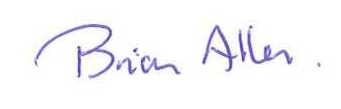 Brian Allen.